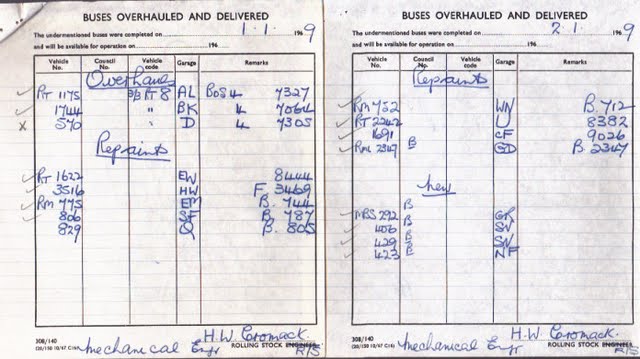 BUSES OVERHAULED AND DELIVERED
The undermentioned buses were completed on 1.1. 1969
and will be available for operation on 196
Vehicle No. Council No. Vehicle code Garage Remarks
Overhauls
RT 1175 3/3 RT 8 AL BOS 4 7327
1744 " BK 4 7064
570 " D 4 7305
Repaints
RT 1622 EW 8444
3516 HW F. 3469
RM 775 EM B. 744
806 SF B. 787
829 Q B. 805
308/140
H.W Cromack.
Mechanical Engr ROLLING STOCK ENGINEER R/S
BUSES OVERHAULED AND DELIVERED
The undermentioned buses were completed on 2.1. 1969
and will be available for operation on 196
Vehicle No. Council No. Vehicle code Garage Remarks
Repaints
RM 752 WN B. 712
RT 2242 U 8382
1691 CF 9026
RML 2349 B GD B. 2347
New
B
MBS 292 B GR
406 B SV
429 B SN
423 B NF
308/140
H.W Cromack
Mechanical Engr ROLLING STOCK ENGINEER